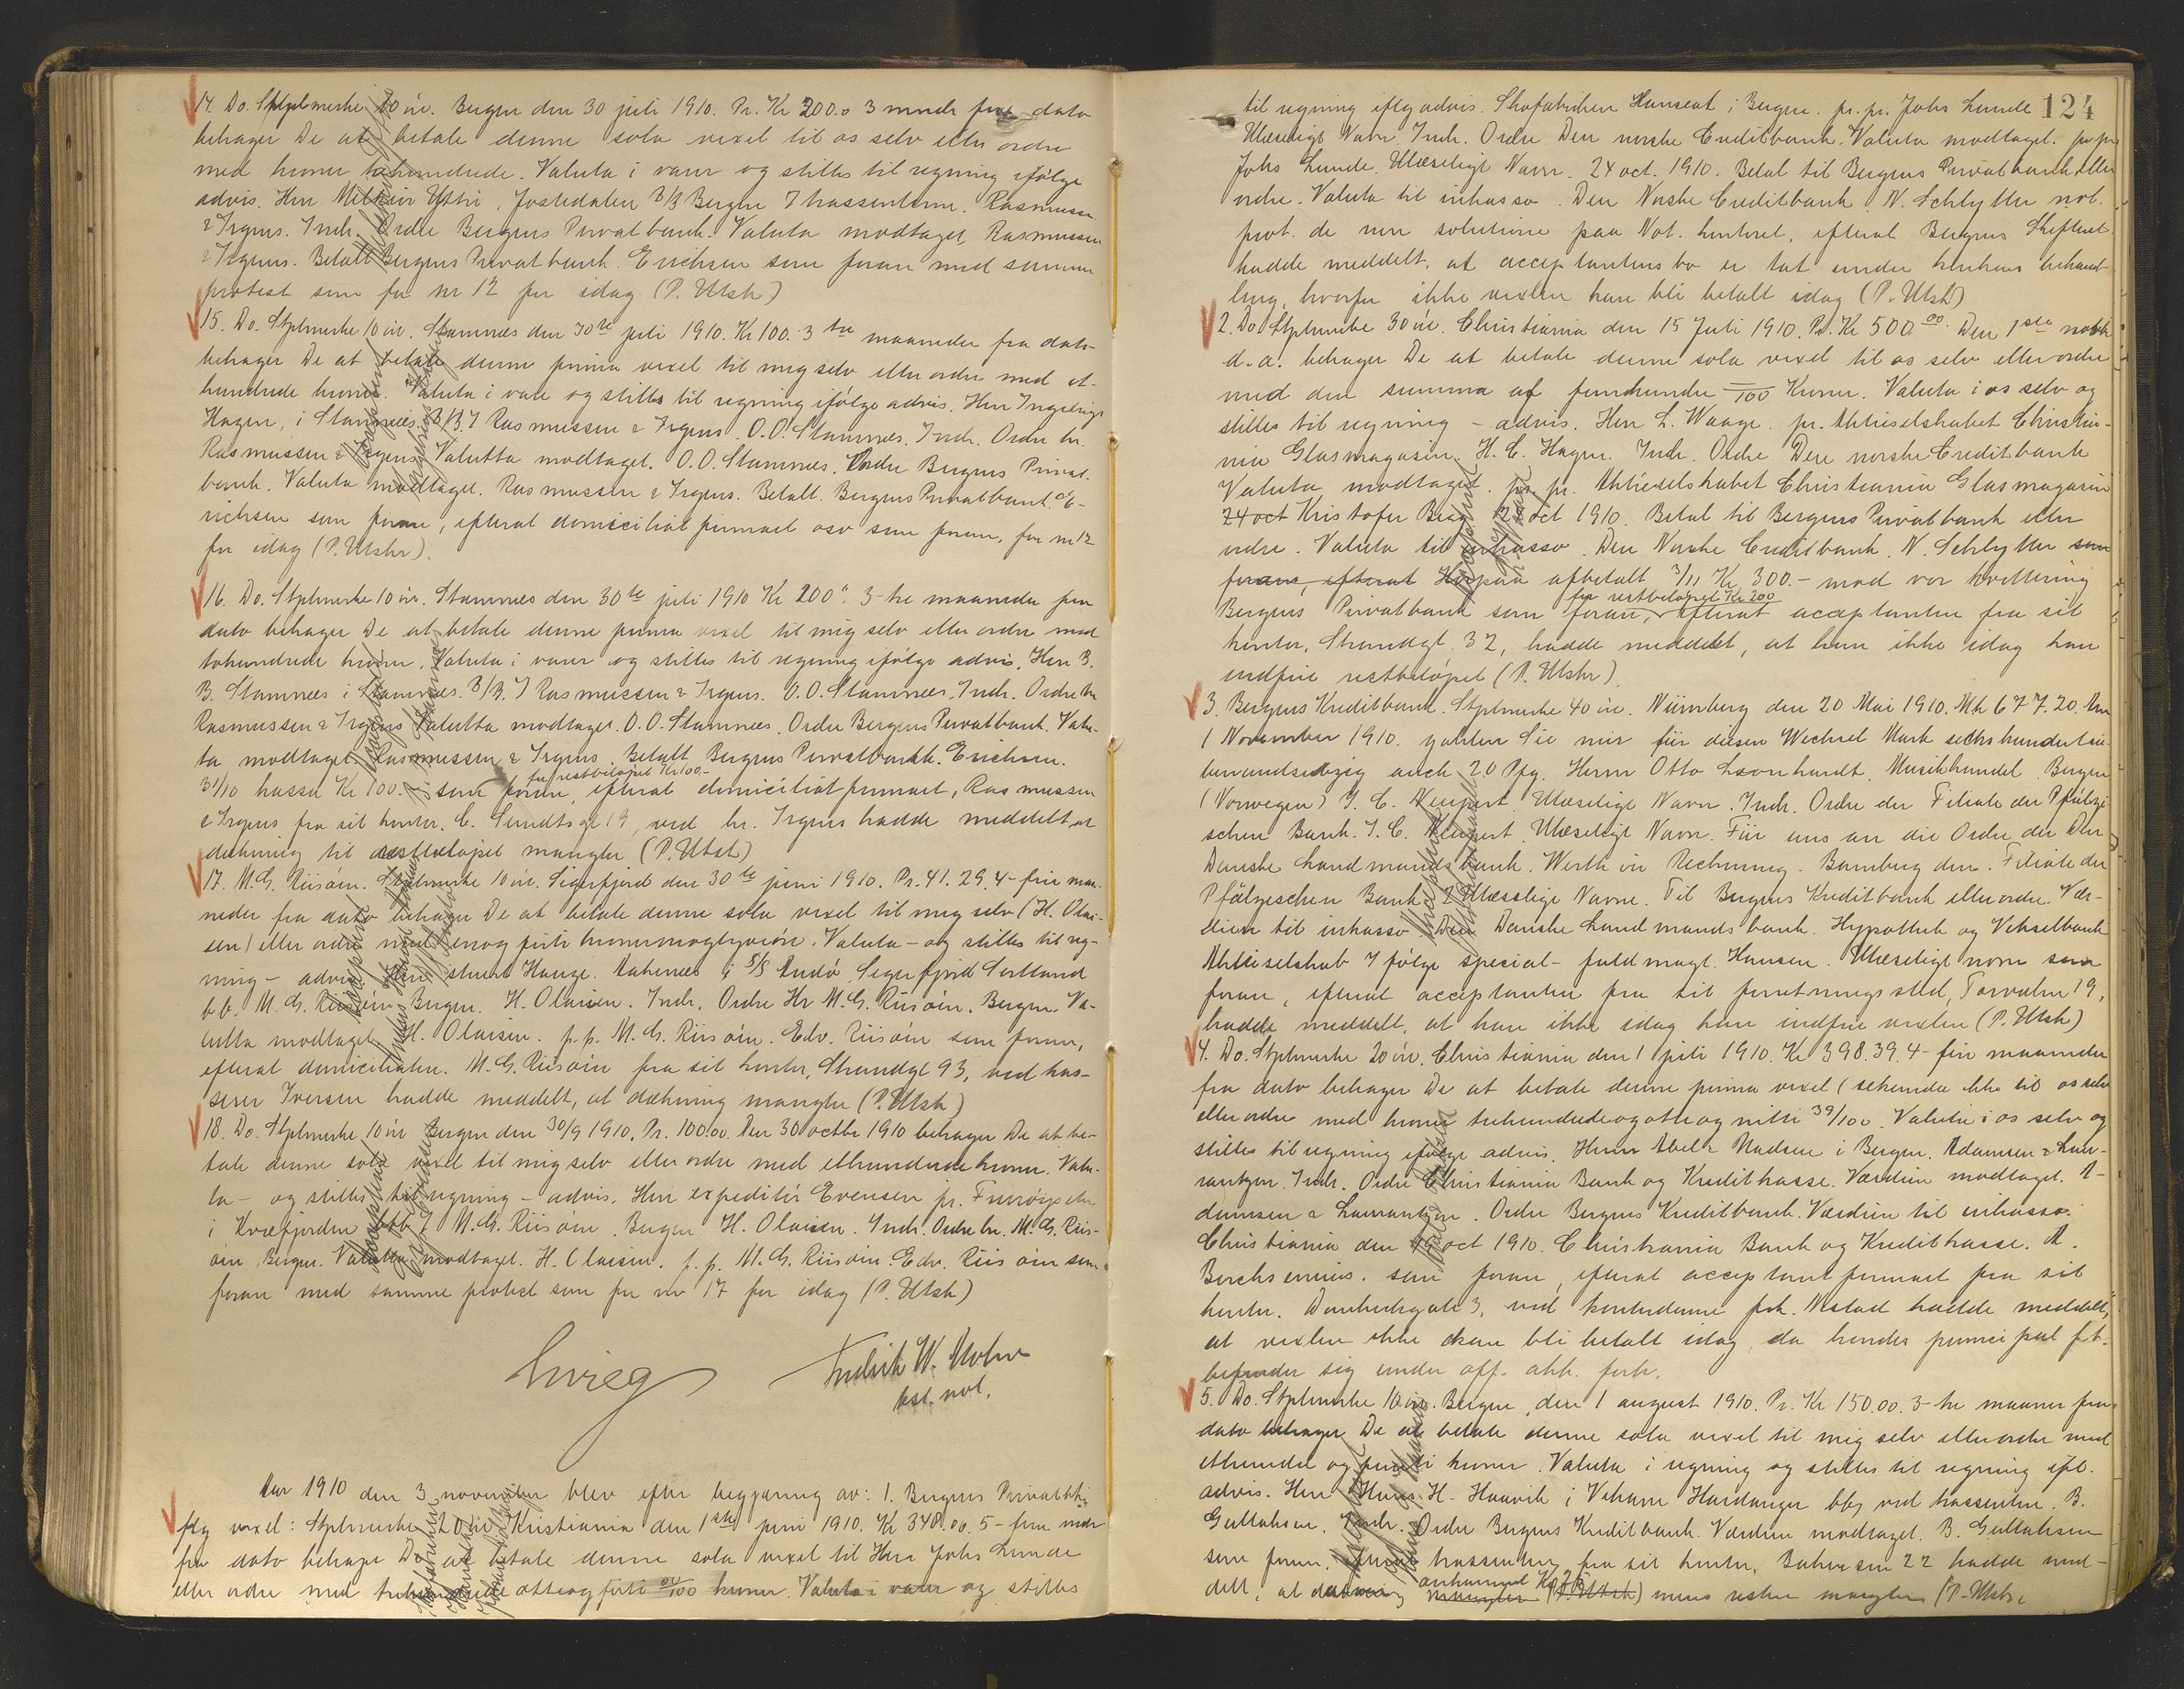 14. Do. Stplmerke 20 öre. Bergen den 30 juli 1910. Pr. Kr 200.0 3 mndr fra dato
behager De at betale denne sola vexel til os selv eller ordre
med kroner tohundrede. Valuta i varer og stilles til regning ifölge
advis. Herr Melkior Yttri, Jostedalen B/B Bergen I kassenterne. Rasmussen
& Irgens. Indr. Ordre Bergens Privatbank. Valuta modtaget Rasmussen
& Irgens. Betalt Bergens Privatbank. Erichsen som foran med samme
protest som for nr 12 for idag (P. Utsk)
15. Do. Stplmerke 10 öre. Stamnes den 30te juli 1910. Kr 100. 3 tre maaneder fra dato
behager De at betale denne prima vexel til mig selv eller ordre med et-
hundrede kroner. Valuta i vare og stilles til regning ifölge advis. Herr
Hagen, i Stamnes B/B. I Rasmussen & Irgens. O.O. Stamnes. Indr. Ordre hr.
Rasmussen & Irgens Valutta modtaget. O.O. Stamnes. Ordre Bergens Privat-
bank. Valuta modtaget. Rasmussen & Irgens. Betalt. Bergens Privatbank. E-
richsen som foran, efterat domiciliatfirmaet osv som foran, for nr 12
for idag (P. Utskr).
16. Do. Stplmerke 10 öre. Stamnes den 30te juli 1910 Kr 200". 3 tre maaneder fra
dato behager De at betale denne prima vexel til mig selv eller ordre med
tohundrede kroner. Valuta i varer og stilles til regning ifölge advis. Herr B.
B. Stamnes i Stamnes. B/B. I Rasmussen & Irgens. O.O. Stamnes. Indr. Ordre hr
Rasmussen & Irgens Valutta modtaget. O.O. Stamnes. Ordre Bergens Privatbank. Valu-
ta modtaget Rasmussen & Irgens. Betalt Bergens Privatbank. Erichsen.
for restbelöpet Kr 100.-
31/10 kassa Kr 100. som foran, efterat domiciliatfirmaet, Rasmussen
& Irgens fra sit kontor, C. Sundtsgt 19, ved hr. Irgens hadde meddelt at
dækning til restbelöpet mangler (P. Utsk)
17. M.G. Riisöen. Stplmerke 10 öre. Sigerfjord den 30te juni 1910. Pr. 41. 29. 4- fire maa-
neder fra dato behager De at betale denne sola vexel til mig selv (H. Olai-
sen) eller ordre med enog firti kroner. Valuta - og stilles til reg-
ning - advis. Herr Hauge. i S/S Andö, Sigerfjord Sortland
bb. M. G. Riisöen Bergen. H. Olaisen. Indr. Ordre Hr M.G. Riisöen. Bergen. Va-
lutta modtaget H. Olaisen. p.p. M. G. Riisöen. Edv. Riisöen som foran,
efterat domiciliaten. M.G. Riisöen fra sit kontor, Strandgt 93, ved kas-
serer Iversen hadde meddelt, at dækning mangler (P. Utsk)
18. Do. Stplmerke 10 öre Bergen den 30/9 1910. Pr. 100.00. Den 30 octbr 1910 behager De at be-
tale denne sola vexel til mig selv eller ordre med ethundrede kroner. Valu-
ta - og stilles til regning - advis. Herr expeditör Evensen pr.
i Kvæfjorden bb I M.G. Riisöen. Bergen H. Olaisen. Indr. Ordre hr. M. G. Riis-
öen, Bergen. Valutta modtaget. H. Olaisen. p.p. M. G. Riisöen. Edv. Riisöen som
foran med samme protest som for nr 17 for idag (P. Utsk)
Fredrik W. Mohn
kst. not.
Aar 1910 den 3 november blev efter begjæring av: 1. Bergens Privatbk.
flg vexel: Stplmerke 20 öre Kristiania den 1ste juni 1910. Kr 348.00. 5- fem mdr
fra dato behager De at betale denne sola vexel til Herr Johs Lunde
eller ordre med trehundrede otteogförti 00/100 kroner. Valuta i varer og stilles
124
til regning iflg advis. Skofabriken Hanseat i Bergen. pr. pr. Johs Lunde
Ulæseligt Navn. Indr. Ordre Den norske Creditbank. Valuta modtaget. pr pr
Johs Lunde. Ulæseligt Navn. 24 oct. 1910. Betal til Bergens Privatbank eller
ordre. Valuta til inkasso. Den Norske Creditbank. N. Schlytter not.
prot. de non solutione paa Not. kontoret, efterat Bergens Skifteret
hadde meddelt, at acceptantens bo er tat under konkurs behand-
ling, hvorfor ikke vexlen kan bli betalt idag (P. Utsk)
2. Do. Stplmerke 30 öre. Christiania den 15 Juli 1910. Pr. Kr 500.00 Den 1ste novbr
d.a. behager De at betale denne sola vexel til os selv eller ordre
med den summa af femhundre -/100 Kroner. Valuta i os selv og
stilles til regning - advis. Herr L. Waage. pr. Aktieselskabet Christia-
nia Glasmagasin. H. C. Hagen. Indr. Ordre Den norske Creditbank
Valuta modtaget. pr. pr. Aktieselskabet Christiania Glasmagasin
24 oct Kristofer Berg 24 oct 1910. Betal til Bergens Privatbank eller
ordre. Valuta til inkasso. Den Norske Creditbank. N. Schlytter som
foran, efterat Herpaa afbetalt 3/11 Kr. 300.- mod vor kvittering
for restbelöpet Kr 200
Bergens Privatbank som foran, efterat acceptanten fra sit
kontor, Strandgt. 32, hadde meddelt, at han ikke idag kan
indfrie restbelöpet (P. Utskr)
3. Bergens Kreditbank. Stplmerke 40 öre. Nürnberg den 20 Mai 1910. Mk 677.20. Am
1 November 1910. zahlen Sie mir für diesen Wechsel Mark sechshundertsie-
benundsiebzig auch 20 Pfg. Herrn Otto Leonhardt, Musikhandel, Bergen
(Norwegen) J. C. Neupert. Ulæselige Navn. Indr. Ordre der Filiale der Pfälzi-
schen Bank. J. C. Neupert. Ulæseligt Navn. Für uns an die Ordre der Den
Danske Landmandsbank. Werth in Rechnung. Bamberg den. Filiale der
Pfälzischen Bank 2 Ulæselige Navne. Til Bergens Kreditbank eller ordre. Vær-
dien til inkasso. Den Danske Landmandsbank. Hypothek og Vekselbank
Aktieselskab Ifölge special-fuldmagt. Hansen. Ulæseligt navn som
foran, efterat acceptanten fra sit forretningssted, Torvalm 19,
hadde meddelt, at han ikke idag kan indfrie vexlen (P. Utsk)
4. Do. Stplmerke 20 öre. Christiania den 1 juli 1910. Kr 398.39. 4- fire maaneder
fra dato behager De at betale denne prima vexel (sekunda ikke til os selv
eller ordre med kroner trehundredeogotteognitti 39/100. Valuta i os selv og
stilles til regning ifölge advis. Herrer Abel & Madsen i Bergen. Adamsen & Lau-
rantzon. Indr. Ordre Christiania Bank og Kreditkasse. Værdien modtaget. A-
damsen & Laurantzon. Ordre Bergens Kreditbank. Værdien til inkasso.
Christiania den oct 1910. Christiania Bank og Kreditkasse. A.
som foran, efterat acceptantfirmaet fra sit
kontor. 3, ved kontordame frk. hadde meddelt,
at vexlen ikke kan bli betalt idag, da hendes principal f.t.
befinder sig under off. akk. forh.
5. Do. Stplmerke 10 öre. Bergen, den 1 august 1910. Pr. Kr 150.00. 3- tre maaner fra
dato behager De at betale denne sola vexel til mig selv eller ordre med
ethundre og femti kroner. Valuta i regning og stilles til regning ifl.
advis. Herr Hans H. Haavik i Hardanger bb, ved kassenten. B.
Gullaksen. Indr. Ordre Bergens Kreditbank. Værdien modtaget. B. Gullaksen
som foran, efterat kassenten fra sit kontor, 22 hadde med-
delt, at dækning mangler (P. Utsk) mens resten mangler (P. Utsk.